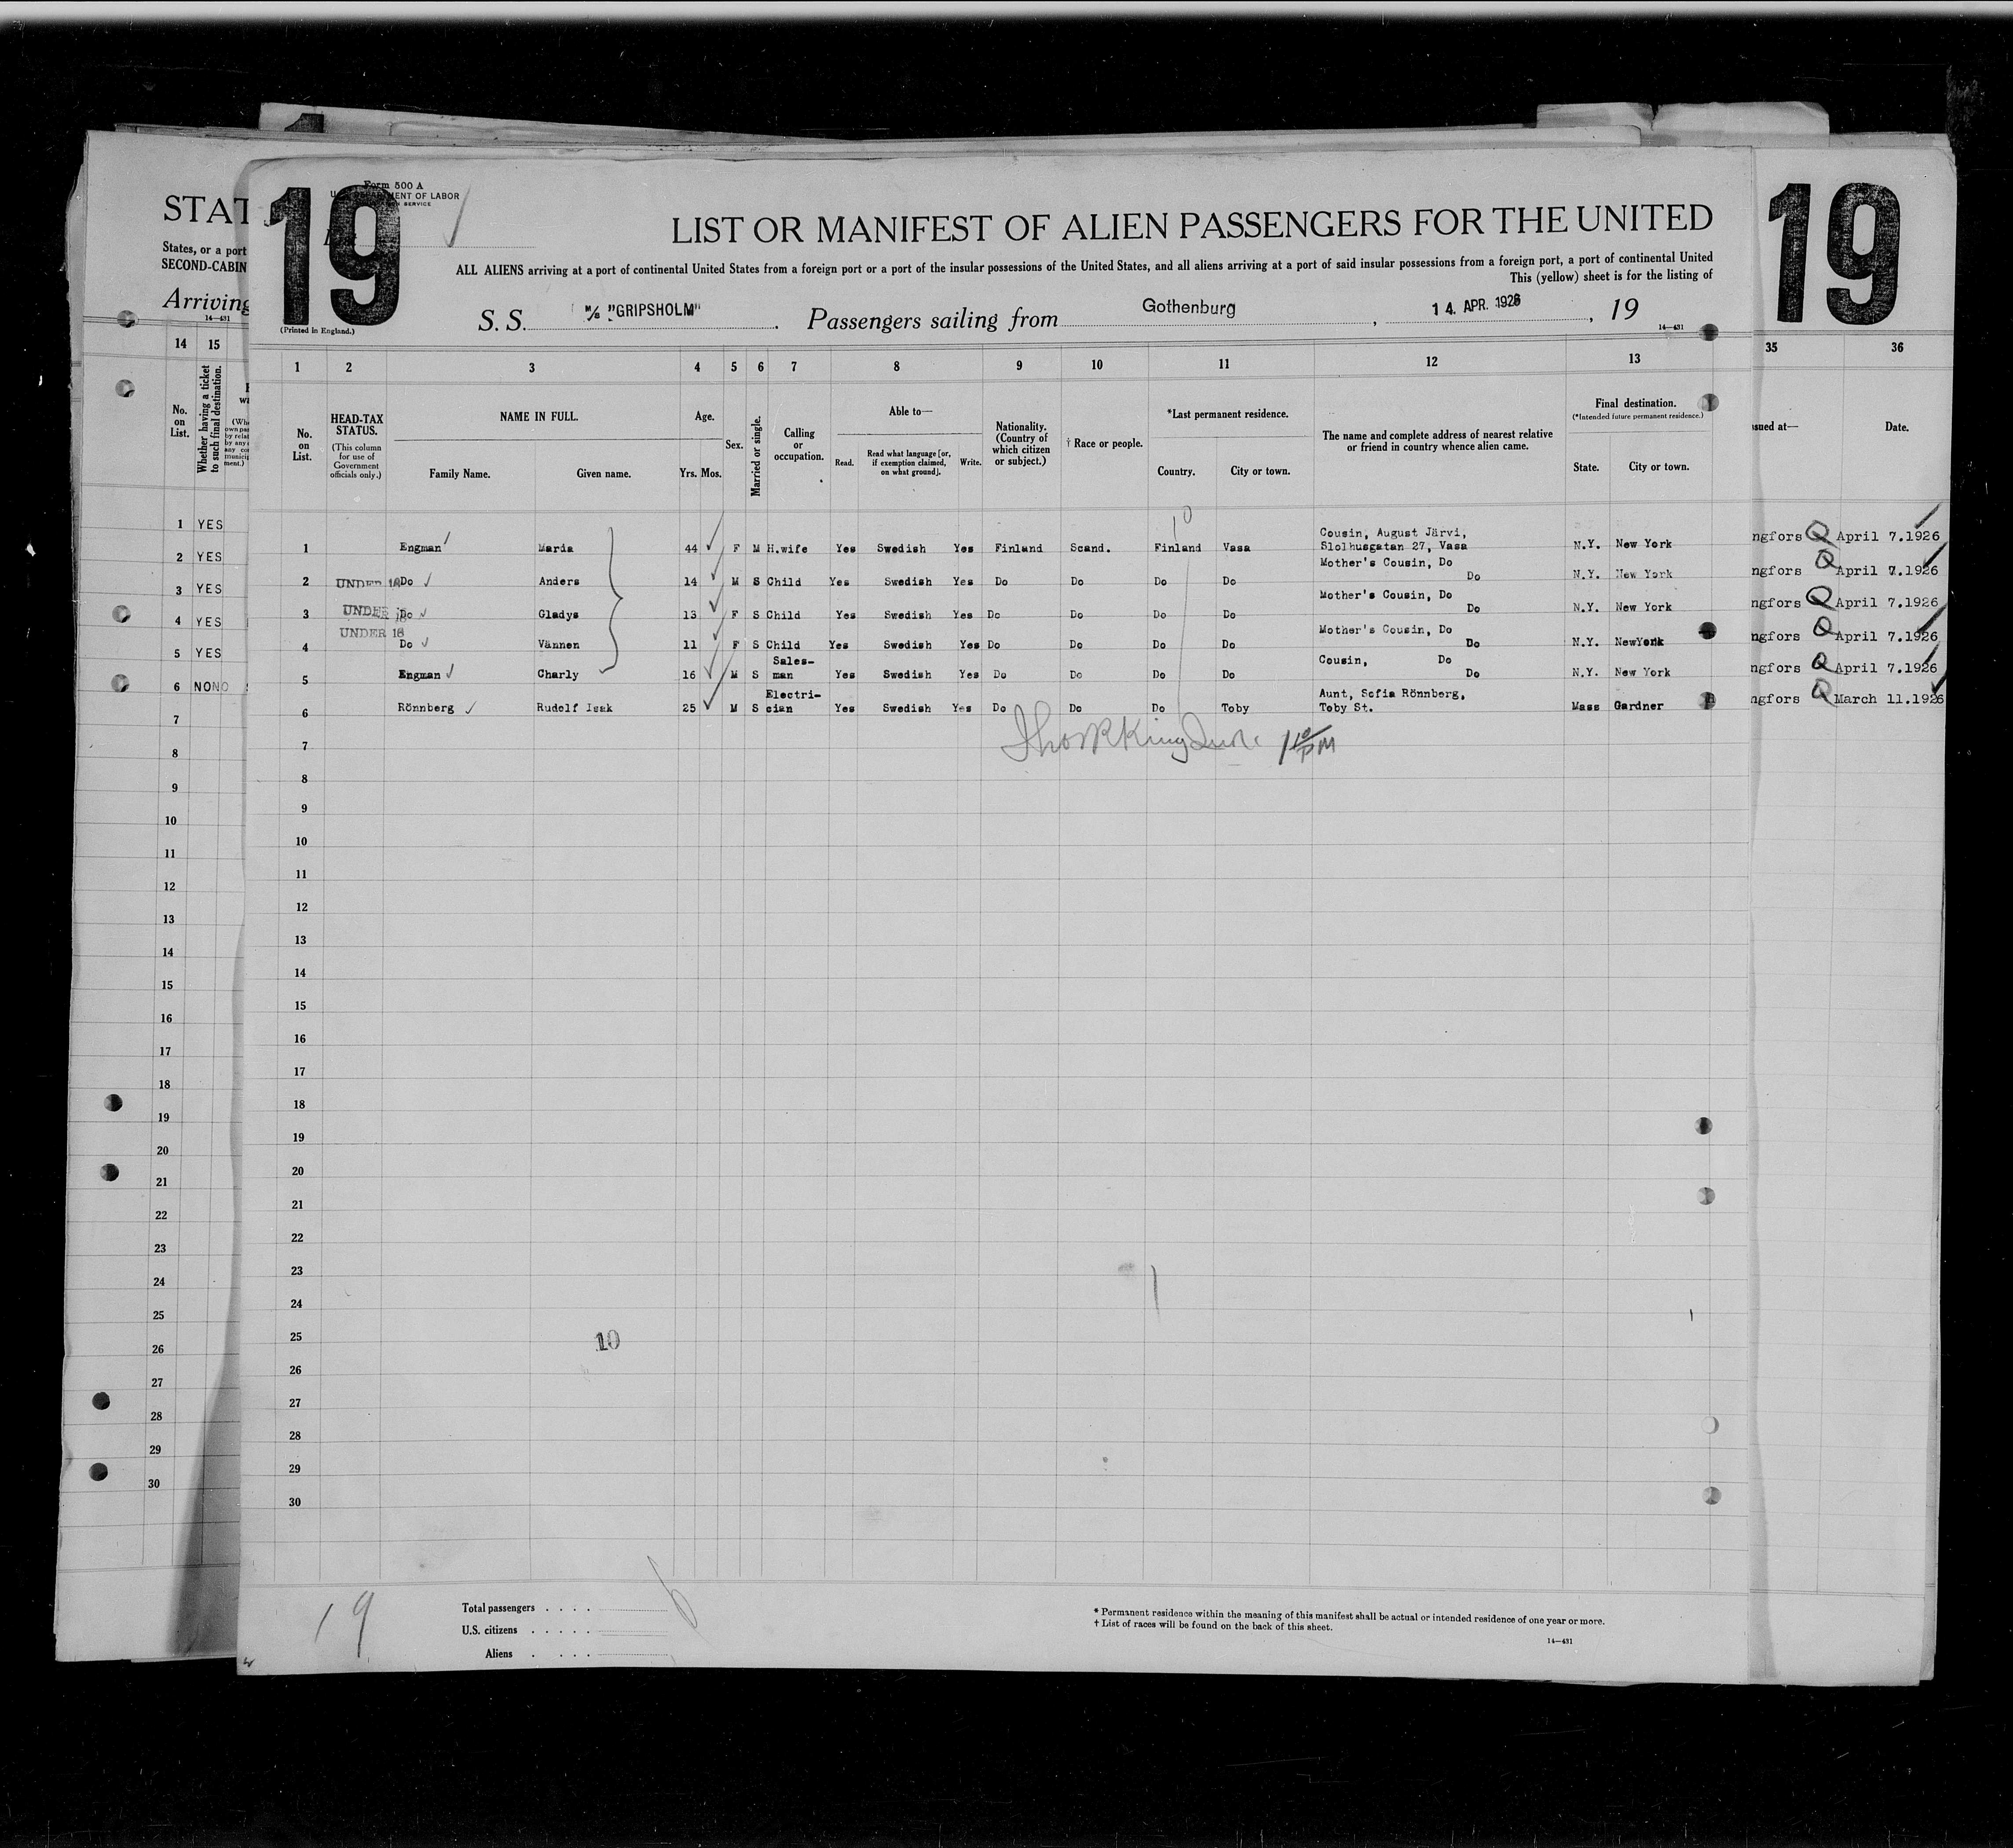 19
Form 500 A
U. S. DEPARTMENT OF LABOR
SERVICE
(Printed in England.)
LIST OR MANIFEST OF ALIEN PASSENGERS FOR THE UNITED
ALL ALIENS arriving at a port of continental United States from a foreign port or a port of the insular possessions of the United States, and all aliens arriving at a port of said insular possessions from a foreign port, a port of continental United
This (yellow) sheet is for the listing of
S. S. M/S "GRIPSHOLM" Passengers sailing from Gothenburg, 14. APR. 1926, 19
14—431
1 2 3 4 5 6 7 8 9 10 11 12 13
No. on List.
HEAD-TAX STATUS.
(This column for use of Government officials only.)
NAME IN FULL.
Family Name. Given name.
Age.
Yrs. Mos.
Sex.
Married or single.
Calling or occupation.
Able to—
Read. Read what language [or, if exemption claimed, on what ground]. Write.
Nationality. (Country of which citizen or subject.)
† Race or people.
*Last permanent residence.
Country. City or town.
The name and complete address of nearest relative or friend in country whence alien came.
Final destination.
(*Intended future permanent residence.)
State. City or town.
10
1 Engman Maria 44 F M H.wife Yes Swedish Yes Finland Scand. Finland Vasa Cousin, August Järvi, Slolhusgatan 27, Vasa N.Y. New York
2 UNDER 16 Do Anders 14 M S Child Yes Swedish Yes Do Do Do Do Mother's Cousin, Do Do N.Y. New York
3 UNDER 16 Do Gladys 13 F S Child Yes Swedish Yes Do Do Do Do Mother's Cousin, Do Do N.Y. New York
4 UNDER 16 Do Vännen 11 F S Child Yes Swedish Yes Do Do Do Do Mother's Cousin, Do Do N.Y. NewYork
5 Engman Charly 16 M S Sales-man Yes Swedish Yes Do Do Do Do Cousin, Do Do N.Y. New York
6 Rönnberg Rudolf Isak 25 M S Electri-cian Yes Swedish Yes Do Do Do Toby Aunt, Sofia Rönnberg, Toby St. Mass Gardner
7
8
9
10
11
12
13
14
15
16
17
18
19
20
21
22
23
24
25
10
26
27
28
29
30
19
Total passengers
6
U.S. citizens
Aliens
* Permanent residence within the meaning of this manifest shall be actual or intended residence of one year or more.
† List of races will be found on the back of this sheet.
14—431
STAT
States, or a port
SECOND-CABIN
Arriving
14—431
14 15
No. on List.
Whether having a ticket to such final destination.
1 YES
2 YES
3 YES
4 YES
5 YES
6 NO NO
7
8
9
10
11
12
13
14
15
16
17
18
19
20
21
22
23
24
25
26
27
28
29
30
19
35 36
ssued at— Date.
ngfors April 7.1926
ngfors April 7.1926
ngfors April 7.1926
ngfors April 7.1926
ngfors April 7.1926
ngfors March 11.1926